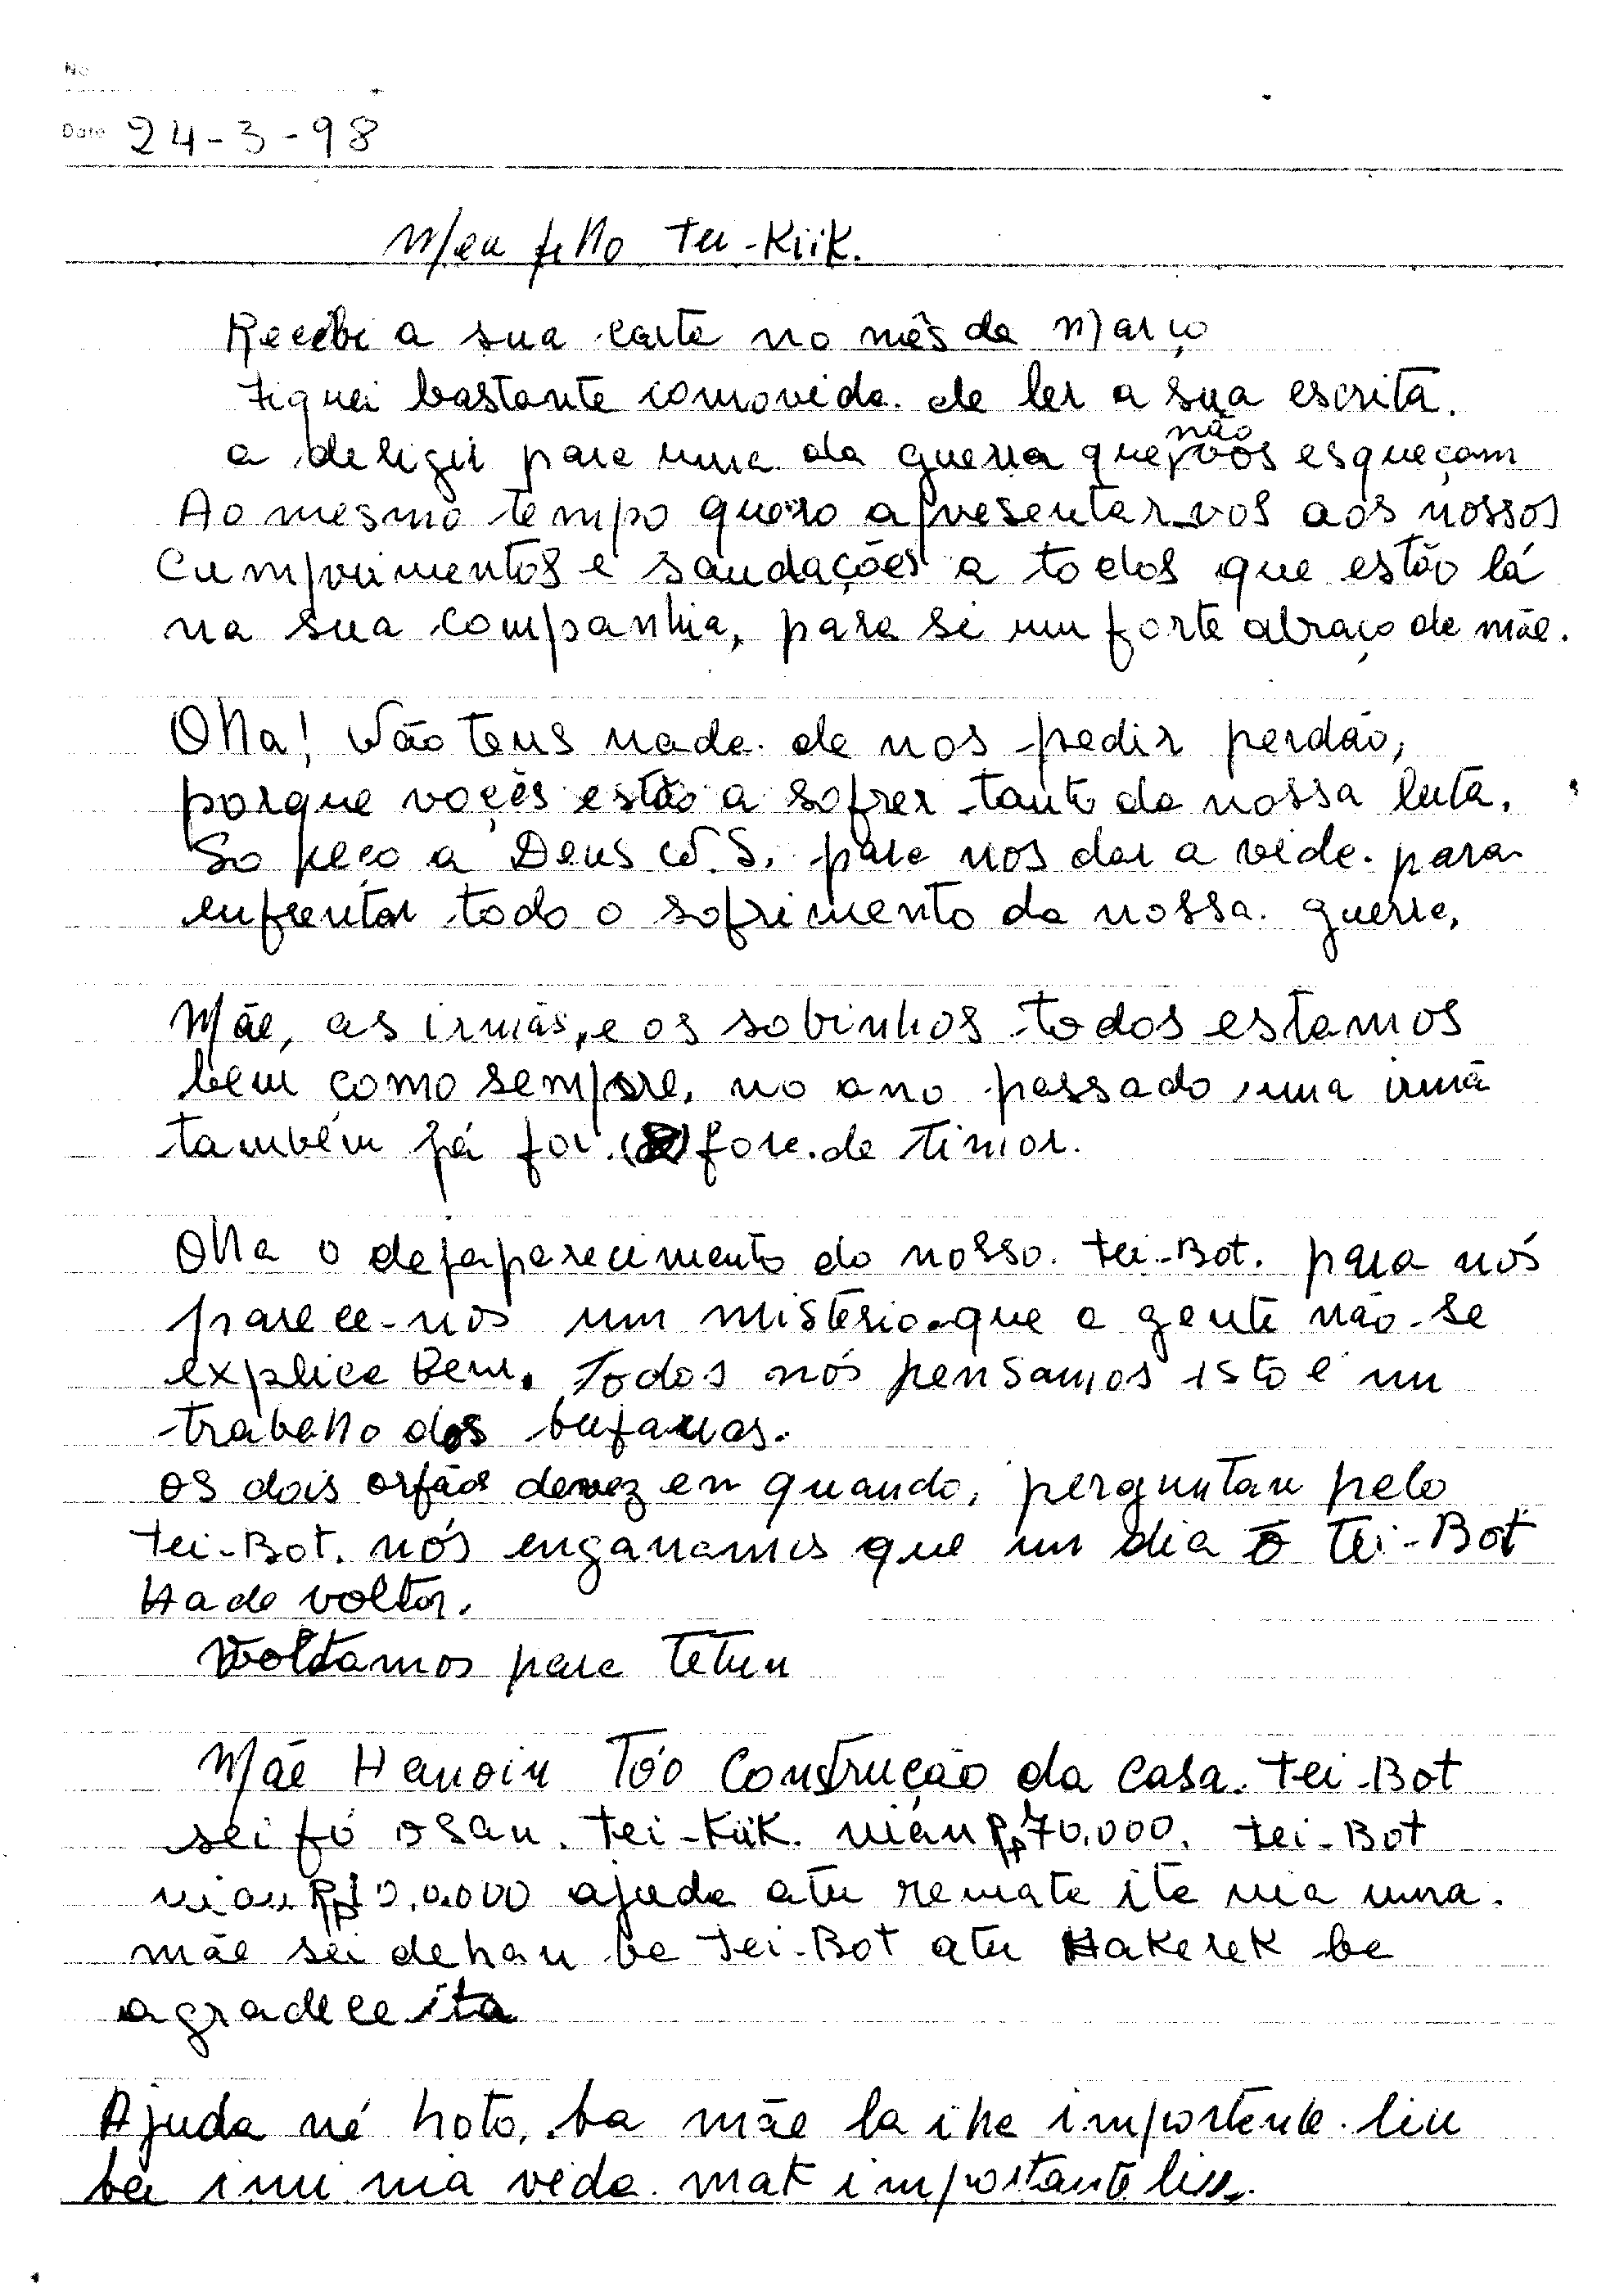 No
Date 24-3-98
Meu filho Tei-Kiik.
Recebi a sua carta no mês de Março
Fiquei bastante comovida. de ler a sua escrita.
não
a deligir para uma da guerra que vos esqueçam
Ao mesmo tempo quero apresentar-vos aos nossos
Cumprimentos e saudações a todos que estão lá
na sua companhia, para si um forte abraço de mãe.
Olha! Não tens nada. de nos pedir perdão,
porque voçês estão a sofrer tanto da nossa luta.
So peço a Deus N.S. para nos dar a vida. para
enfrentar todo o sofrimento da nossa. guerra,
Mãe, as irmãs, e os sobinhos todos estamos
bem como sempre, no ano passado, uma irmã
também já foi. fora. de Timor.
Olha o desaparecimento do nosso. Tei-Bot. para nós
parece-nos um mistério que a gente não-se
explica bem. Todos nós pensamos isto é um
trabalho dos bufanos.
os dois orfãos devez en quando, perguntan pelo
Tei-Bot. nós enganamos que um dia o Tei-Bot
Hade voltar.
Voltamos para Tetun
Mãe Hanoin Tóo Construção da casa. Tei-Bot
sei fó osan. Tei-Kiik. nián Rp 70.000. Tei-Bot
nian Rp 0.000 ajuda atu remata ita nia uma.
mãe sei dehan ba Tei-Bot atu Hakerek ba
agradece ita
Ajuda né hoto, ba mãe la iha importante. liu
ba imi nia vida. mak importante liu.